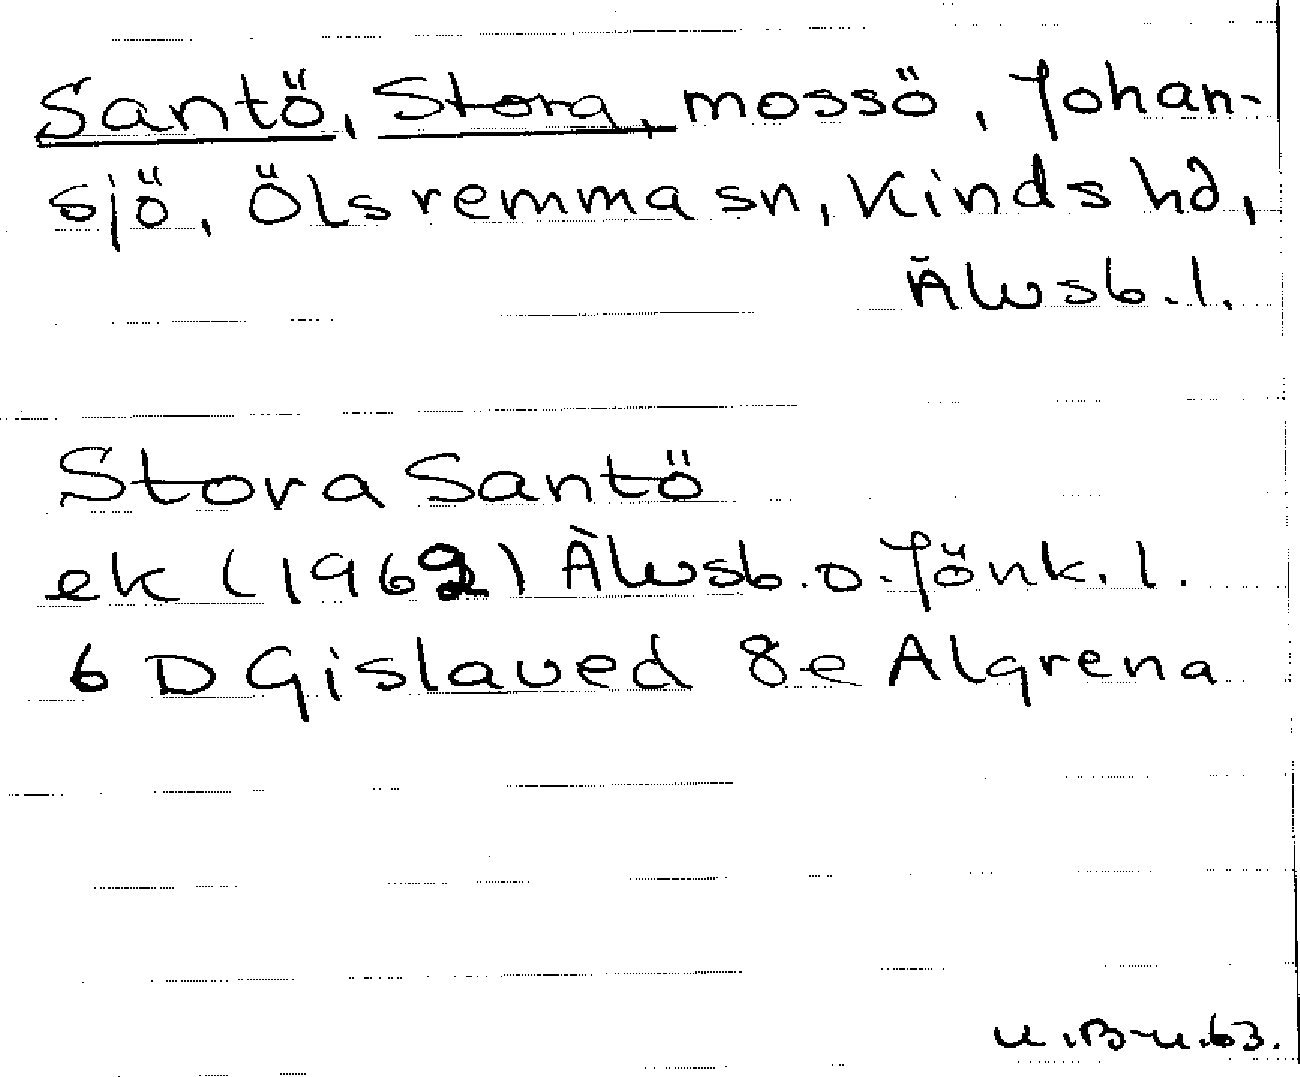 Santö, Stora, mossö, Johan-
sjö, Ölsremma sn, Kinds hd,
Älvsb. l.
Stora Santö
ek (1962) Älvsb. o. Jönk. l.
6 D Gislaved 8e Algrena
U.B-u.63.